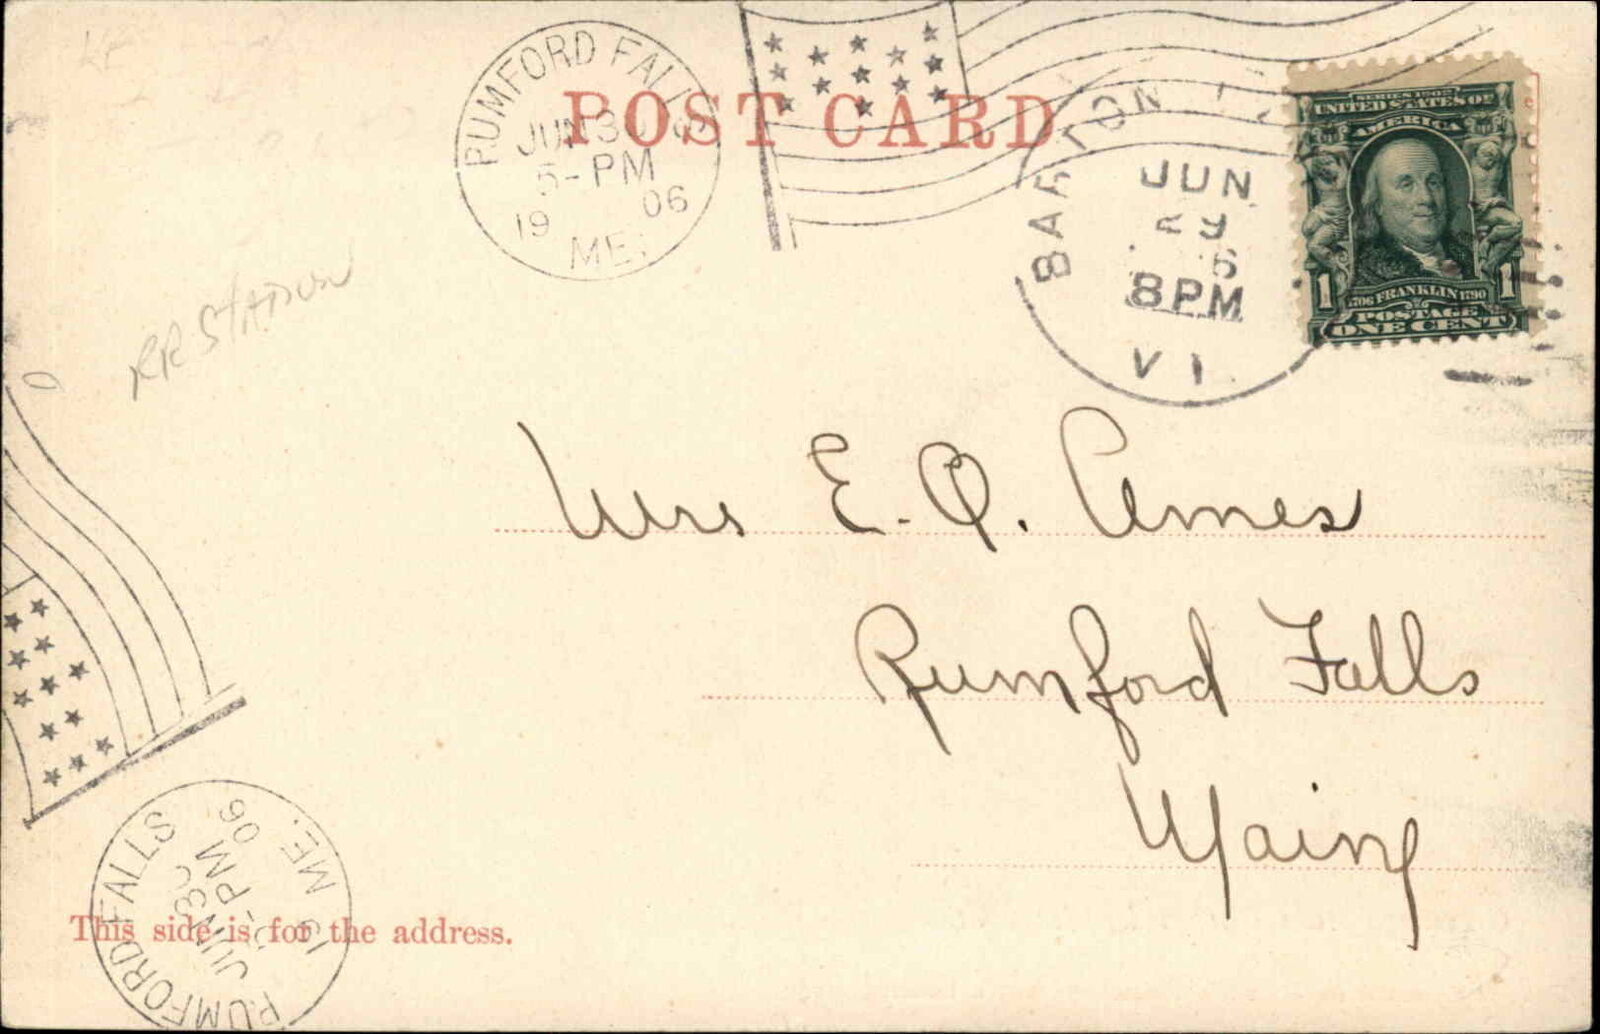 RUMFORD FALLS
JUN 30
5-PM
19 06
ME.
POST CARD
BARTON
JUN
29
6
8 PM
VT.
SERIES 1902
UNITED STATES OF
AMERICA
1 1706 FRANKLIN 1790 1
POSTAGE
ONE CENT
RR STATION
Mrs E. Q. Ames
Rumford Falls
Maine
RUMFORD FALLS
JUN 30
5-PM
19 06
ME.
This side is for the address.